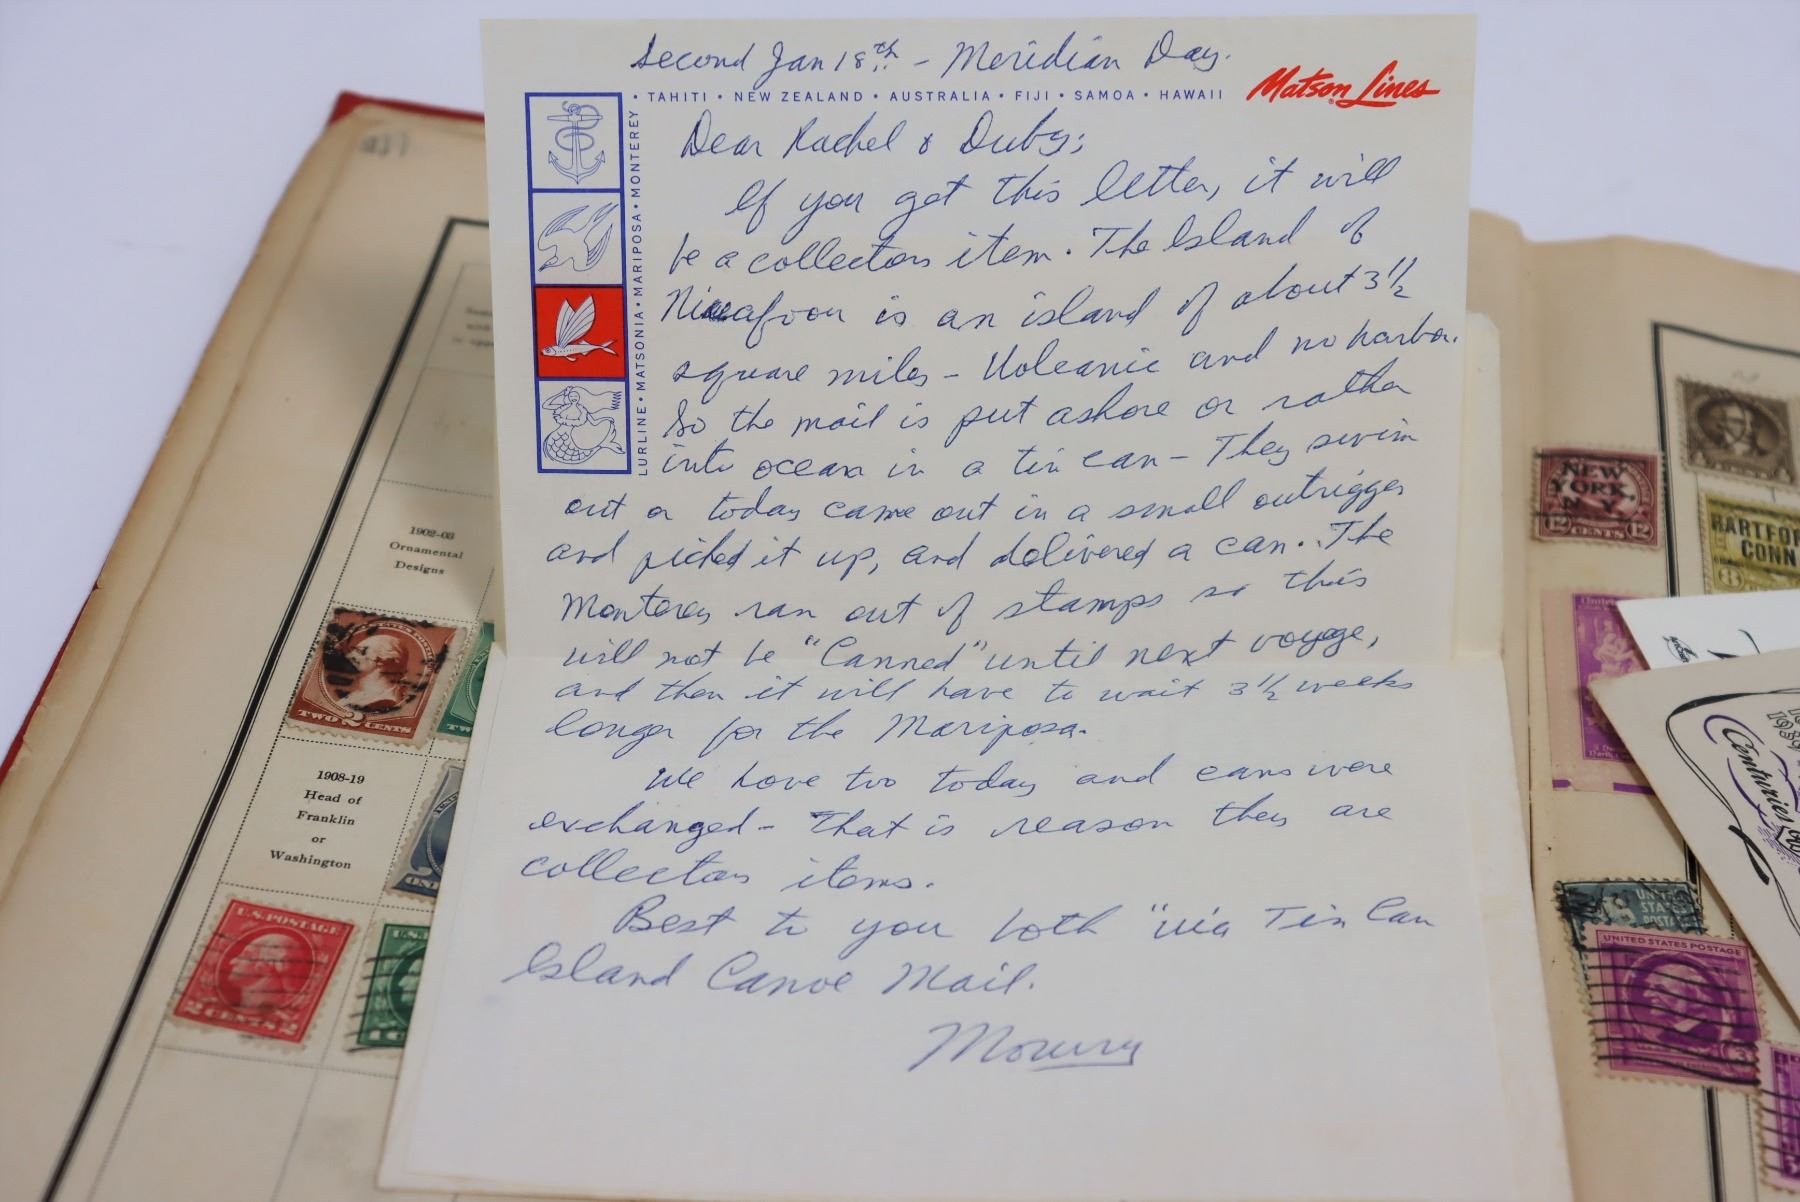 Second Jan 18th - Meridian Day.
Matson Lines
• TAHITI • NEW ZEALAND • AUSTRALIA • FIJI • SAMOA • HAWAII
LURLINE • MATSONIA • MARIPOSA • MONTEREY
Dear Rachel & Duby;
If you get this letter, it will
be a collectors item. The Island of
is an island of about 3 1/2
square miles - Volcanic and no harbor.
So the mail is put ashore or rather
into ocean in a tin can - They swim
out or today came out in a small outrigger
and picked it up, and delivered a can. The
Monterey ran out of stamps so this
will not be "Canned" until next voyage,
and then it will have to wait 3 1/2 weeks
longer for the Mariposa.
We have two today and cans were
exchanged - That is reason they are
collectors items.
Best to you both "via Tin Can
Island Canoe Mail.
1902-03
Ornamental
Designs
TWO 2 CENTS
TW
1908-19
Head of
Franklin
or
Washington
ON
U.S. POSTAGE
2 CENTS 2
U.S.
1 C
NEW
YORK,
N Y
12 CENTS 12
HARTFOR
CONN
8
Centuries
UNITED STATES POSTAGE
3